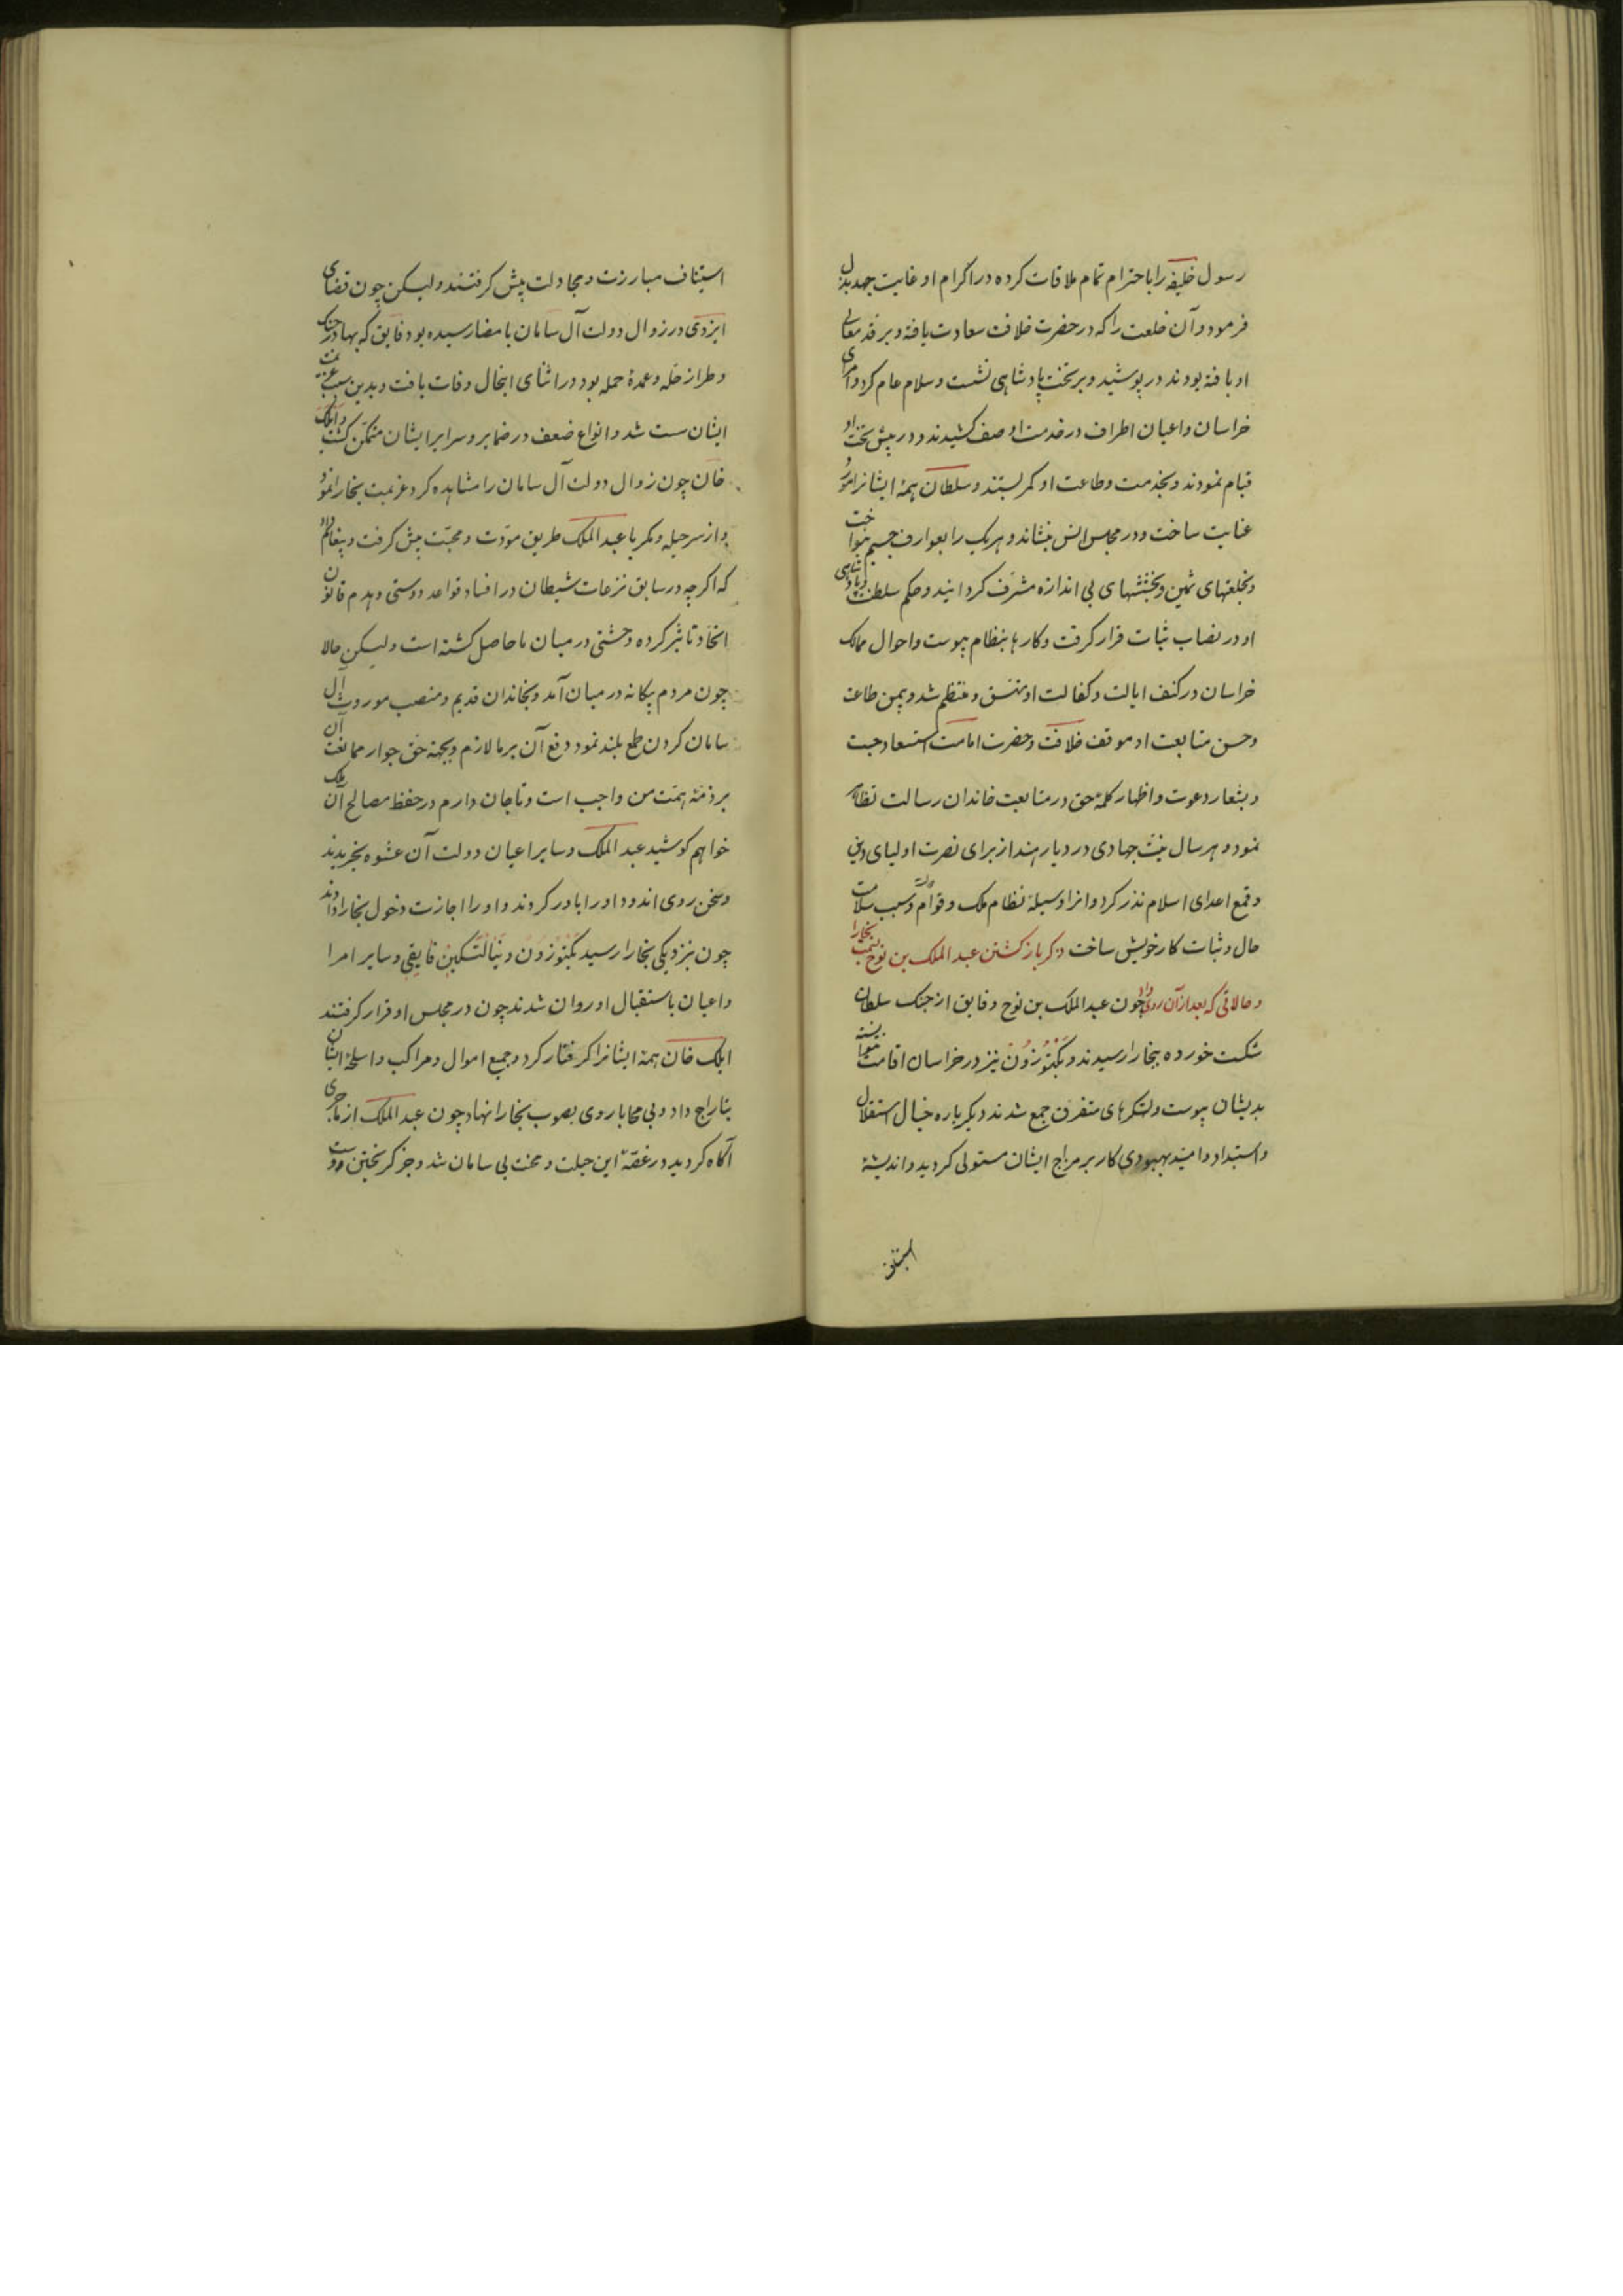 رسول خلیفه را با حترام تمام ملاقات کرده در اکرام او غایت جهد بذل
فرمود و آن خلعت را که در حضرت خلافت سعادت یافته و بر قد معالی
او بافته بودند در پوشید و بر تخت پادشاهی نشست و سلام عام کرد و امرای
خراسان و اعیان اطراف در خدمت او صف کشیدند و در پیش تخت او
قیام نمودند و بخدمت و طاعت او کمر بستند و سلطان همهٔ ایشانرا مورد
عنایت ساخت و در مجلس انس بنشاند و هر یک را بعوارف جسیم بنواخت
و بخلعتهای ثمین و بخششهای بی اندازه مشرّف کردانید و حکم سلطنت و پادشاهی
او در نصاب ثبات قرار کرفت و کارها بنظام پیوست و احوال ممالک
خراسان در کنف ایالت و کفالت او متسّق و منتظم شد و بیمن طاعت
و حسن متابعت او موقف خلافت و حضرت امامت استسعاد جست
و بشعار دعوت و اظهار کلمهٔ حق در متابعت خاندان رسالت تظاهر
نمود و هر سال نیّت جهادی در دیار هند از برای نصرت اولیای دین
و قمع اعدای اسلام نذر کرد و انرا وسیلهٔ نظام ملک و قوام دولت و سبب سلامت
حال و ثبات کار خویش ساخت ذکر باز کشتن عبد الملک بن نوح بسمت بخارا
و حالاتی که بعد از آن روی داد چون عبد الملک بن نوح و فایق از جنک سلطان
شکست خورده ببخارا رسیدند و بکتوزون نیز در خراسان اقامت نتوانسته
بدیشان پیوست و لشکرهای متفرق جمع شدند دیکر باره خیال استقلال
و استبداد و امید بهبودی کار بر مزاج ایشان مستولی کردید و اندیشهٔ
استیناف
استیناف مبارزت و مجادلت پیش کرفتند و لیکن چون قضای
ایزدی در زوال دولت آل سامان بامضا رسیده بود فایق که بهادر جنک
و طراز حلّه و عمدهٔ جمله بود در اثنای اینحال وفات یافت و بدین سبب عزیمت
ایشان سست شد و انواع ضعف در ضمایر و سرایر ایشان متمکّن کشت و ایلک
خان چون زوال دولت آل سامان را مشاهده کرد عزیمت بخارا نمود
و از سر حیله و مکر با عبد الملک طریق مودّت و محبّت پیش کرفت و پیغام داد
که اکرچه در سابق نزعات شیطان در افساد قواعد دوستی و هدم قانون
اتحاد تاثیر کرده وحشتی در میان ما حاصل کشته است و لیسکن حالا
چون مردم بیکانه در میان آمد و بخاندان قدیم و منصب موروث آل
سامان کردن طمع بلند نمود دفع آن بر ما لازم و بجهة حق جوار ممانعت آن
بر ذمّهٔ همّت من واجب است و تا جان دارم در حفظ مصالح آن ملک
خواهم کوشید عبد الملک و سایر اعیان دولت آن عشوه بخریدند
و سخن روی اندود او را باور کردند و او را اجازت دخول بخارا دادند
چون بنزدیکی بخارا رسید بکتوزون و ینالتکین فایقی و سایر امرا
و اعیان باستقبال او روان شدند چون در مجلس او قرار کرفتند
ایلک خان همهٔ ایشانرا کرفتار کرد و جمیع اموال و مراکب و اسلحهٔ ایشان
بتاراج داد و بی محابا روی بصوب بخارا نهاد چون عبد الملک از ماجری
آکاه کردید در غصّهٔ این حیلت و محنت بی سامان شد و جز کریختن